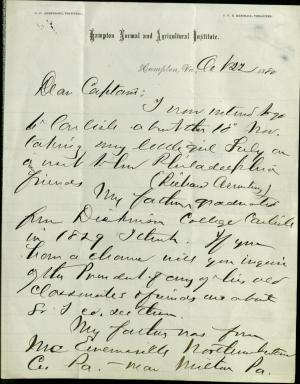 Hampton Normal and Agricultural Institute.
Hampton, Va. Oct 22 1880
Dear Captain:
I now intend to go
to Carlisle about the 10th Nov.
taking my
a visit to the Philadelphia
friends
My father graduated
from Dickinson College Carlisle
in 1829 I think. If you
have a chance will you inquire
of the President if any of his old
classmates or friends are about
So I can see them.
My father was from
Mc Ewensville Northumberland
Co. Pa. near Milton Pa.